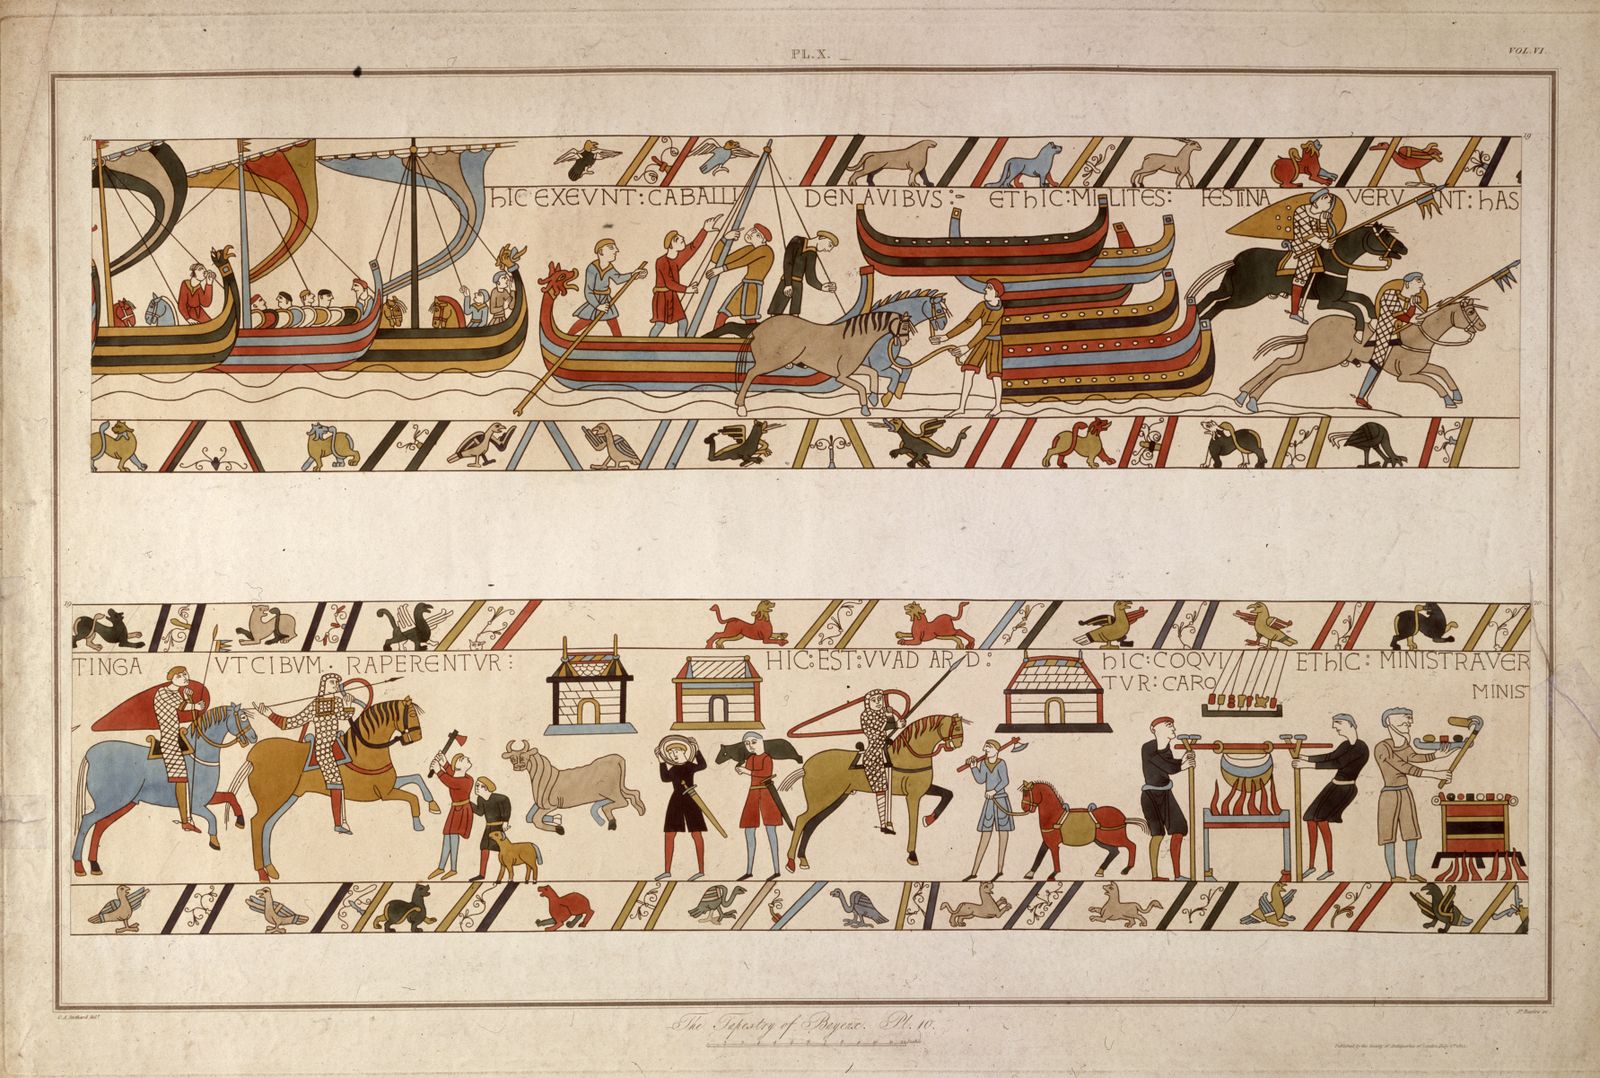 PL.X.
VOL.VI.
18
19
hIC EXEVNT: CABALLI DENAVIBVS:- EThIC: MILITES: FESTINA VERVNT: hAS
19
20
TINGA VT CIBVM: RAPERENTVR:
HIC: EST: VVADARD:
hIC: COQVI
TVR: CARO
EThIC: MINISTRAVER
MINIS
C.A. Stothard del.
The Tapestry of Bayeux. Pl. 10.
Js. Basire sc.